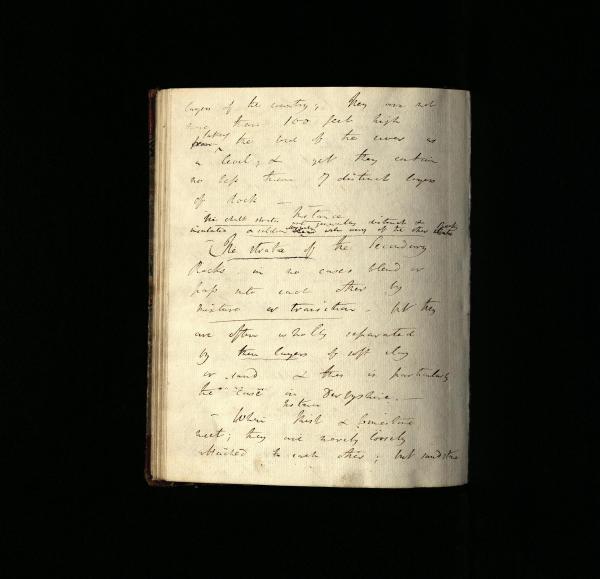 layers of the country; they are not
more than 100 feet high
taking
from the bed of the river as
a level; & yet they contain
no less than 7 distinct layers
of Rock —
Instance
The chill strata not generally distinct &
insulated & seldom with any of the other
— The strata of the Secondary
Rocks in no cases blend or
pass into each other by
mixture or transition - but they
are often wholly separated
by thin layers of soft clay
or sand & this is particularly
the case in Derbyshire. —
Instance
— When Shist & limestone
meet; they are merely loosely
attached to each other; but sandstone